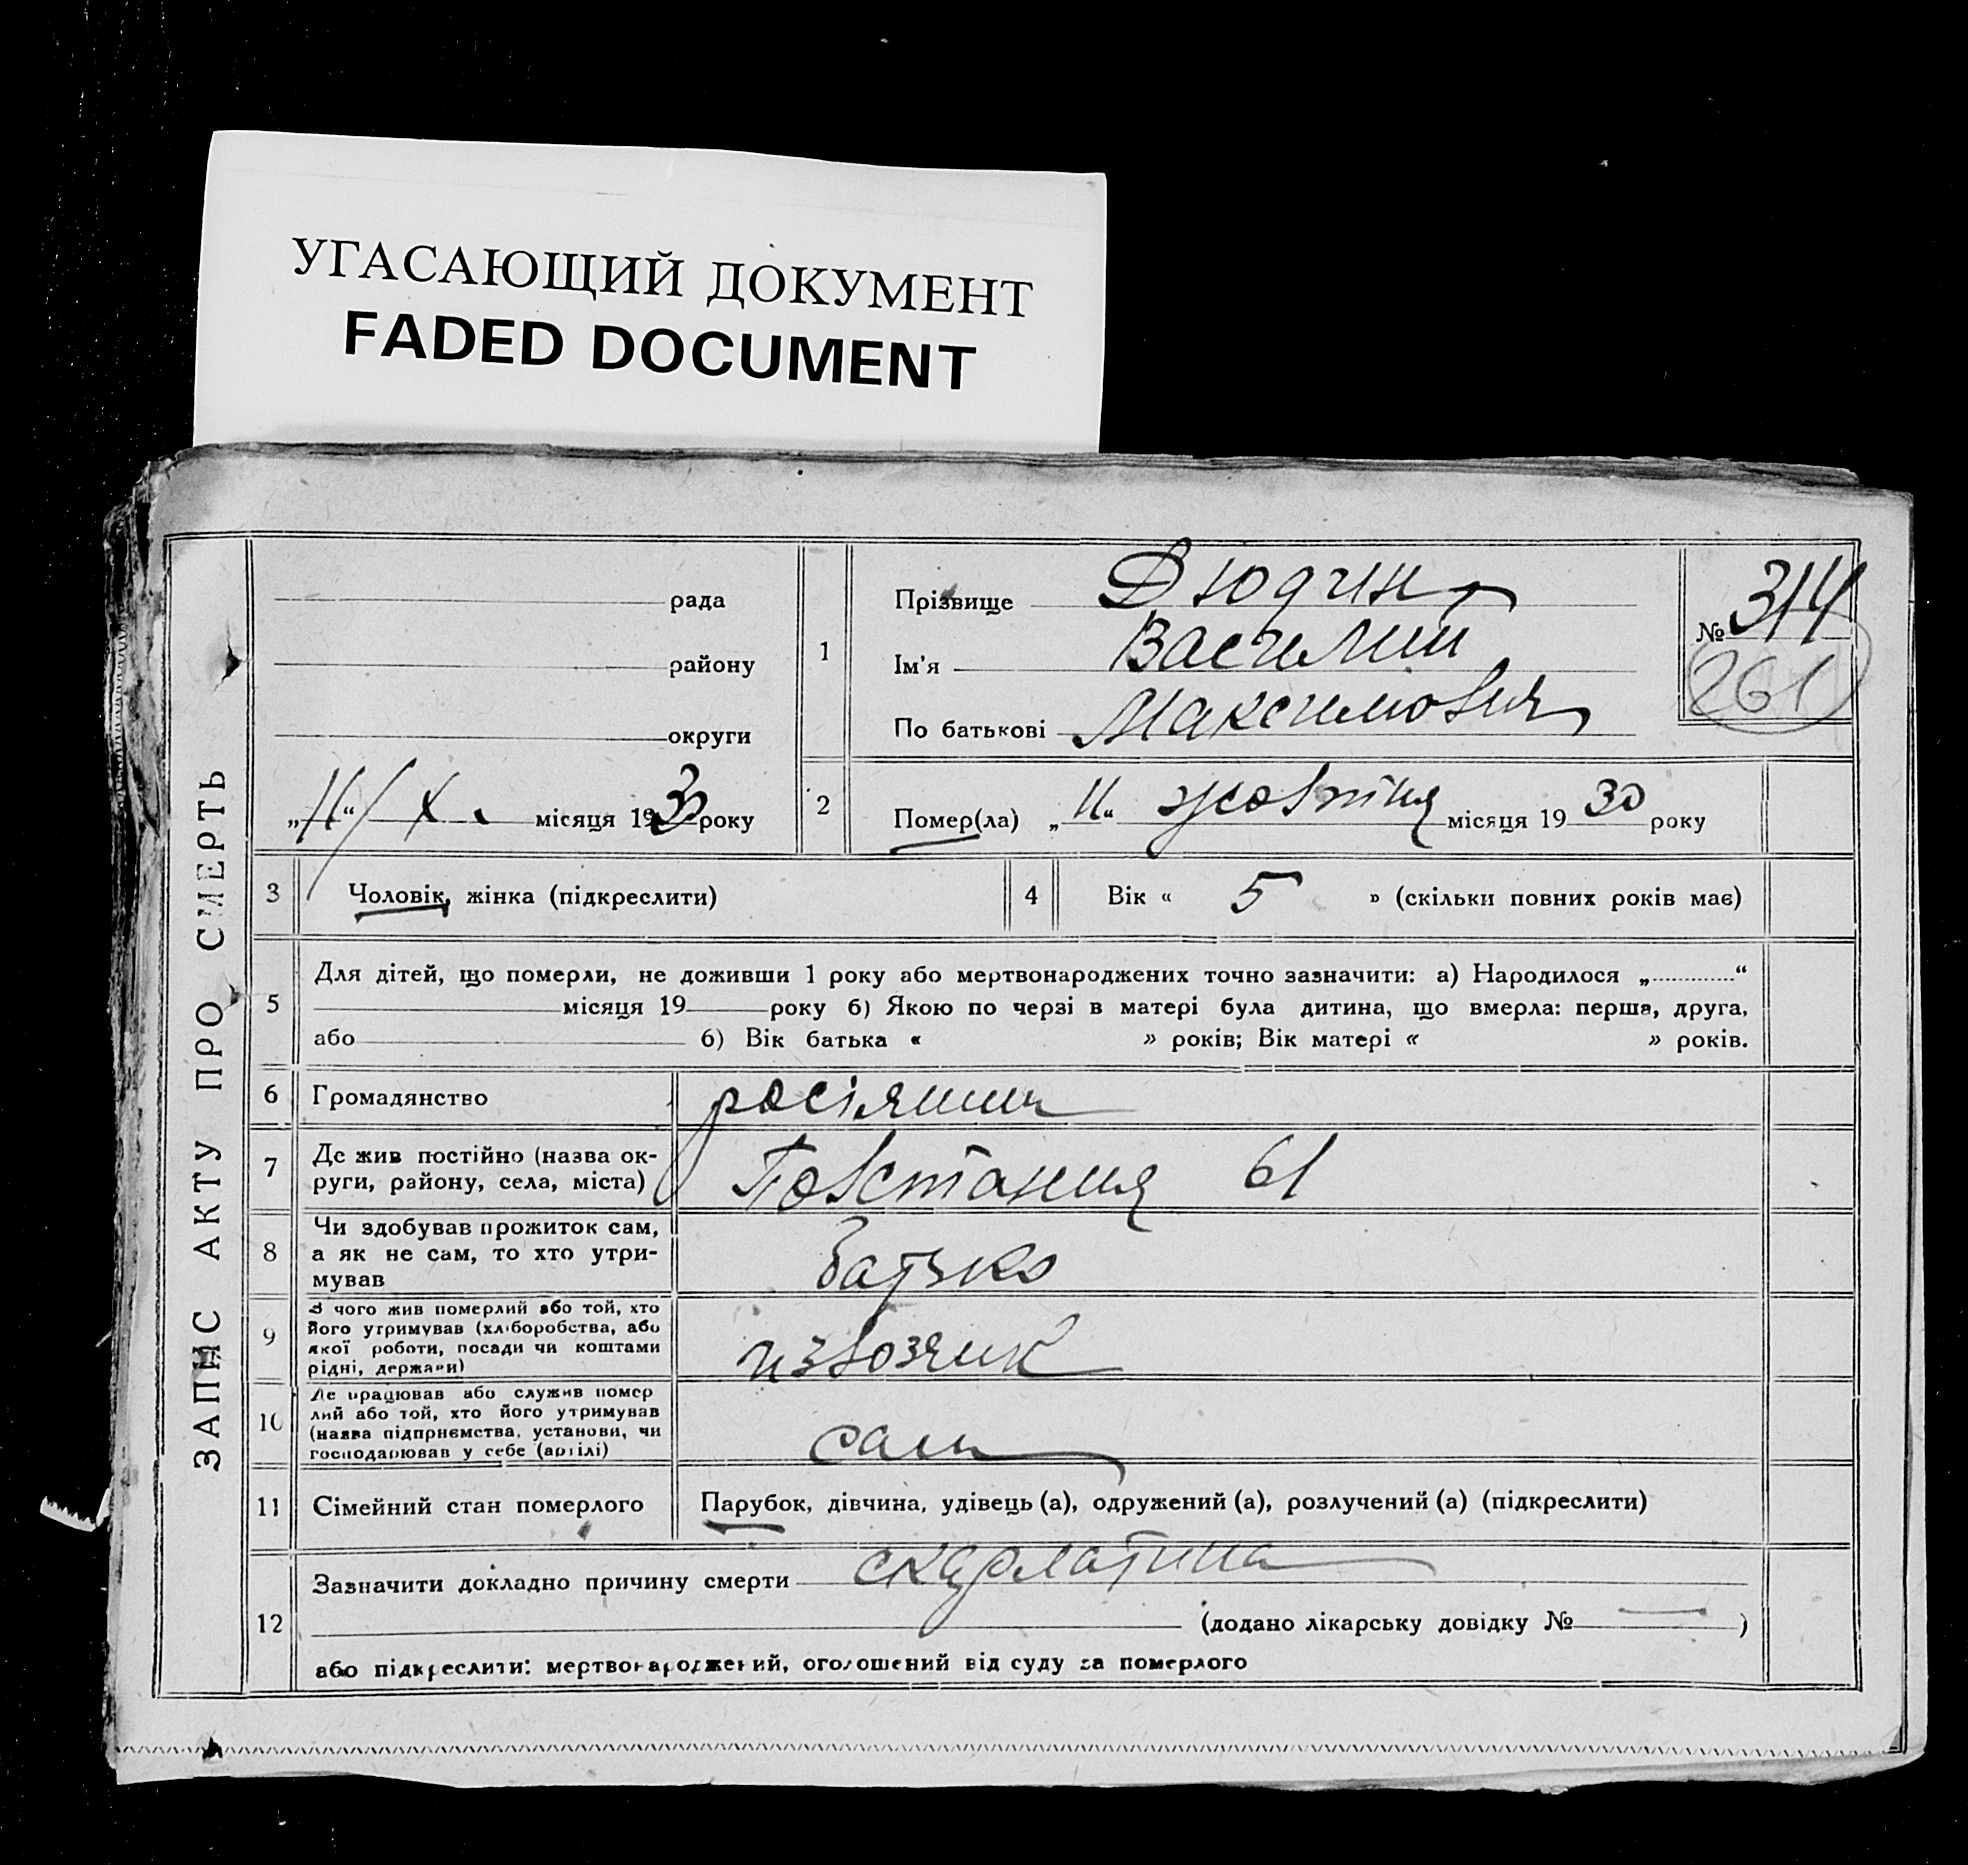 УГАСАЮЩИЙ ДОКУМЕНТ
FADED DOCUMENT
ЗАПИС АКТУ ПРО СМЕРТЬ
рада
району
округи
„11“ X. місяця 1930 року
1
Прізвище Дюдин
Ім'я Василий
По батькові Максимович
№ 314
261
2
Помер(ла) „11“ жовтня місяця 1930 року
3 Чоловік, жінка (підкреслити)
4 Вік « 5 » (скільки повних років має)
5
Для дітей, що померли, не доживши 1 року або мертвонароджених точно зазначити: а) Народилося „ “
місяця 19 року б) Якою по черзі в матері була дитина, що вмерла: перша, друга,
або б) Вік батька « » років; Вік матері « » років.
6 Громадянство росіянин
7
Де жив постійно (назва ок-
руги, району, села, міста) Повстання 61
8
Чи здобував прожиток сам,
а як не сам, то хто утри-
мував батько
9
З чого жив померлий або той, хто
його утримував (хліборобства, або
якої роботи, посади чи коштами
рідні, держави) извозчик
10
Де працював або служив помер
лий або той, хто його утримував
(назва підприємства, установи, чи
господарював у себе (артілі) сам
11 Сімейний стан померлого Парубок, дівчина, удівець (а), одружений (а), розлучений (а) (підкреслити)
12
Зазначити докладно причину смерти скарлатина
(додано лікарську довідку № — )
або підкреслити: мертвонароджений, оголошений від суду за померлого